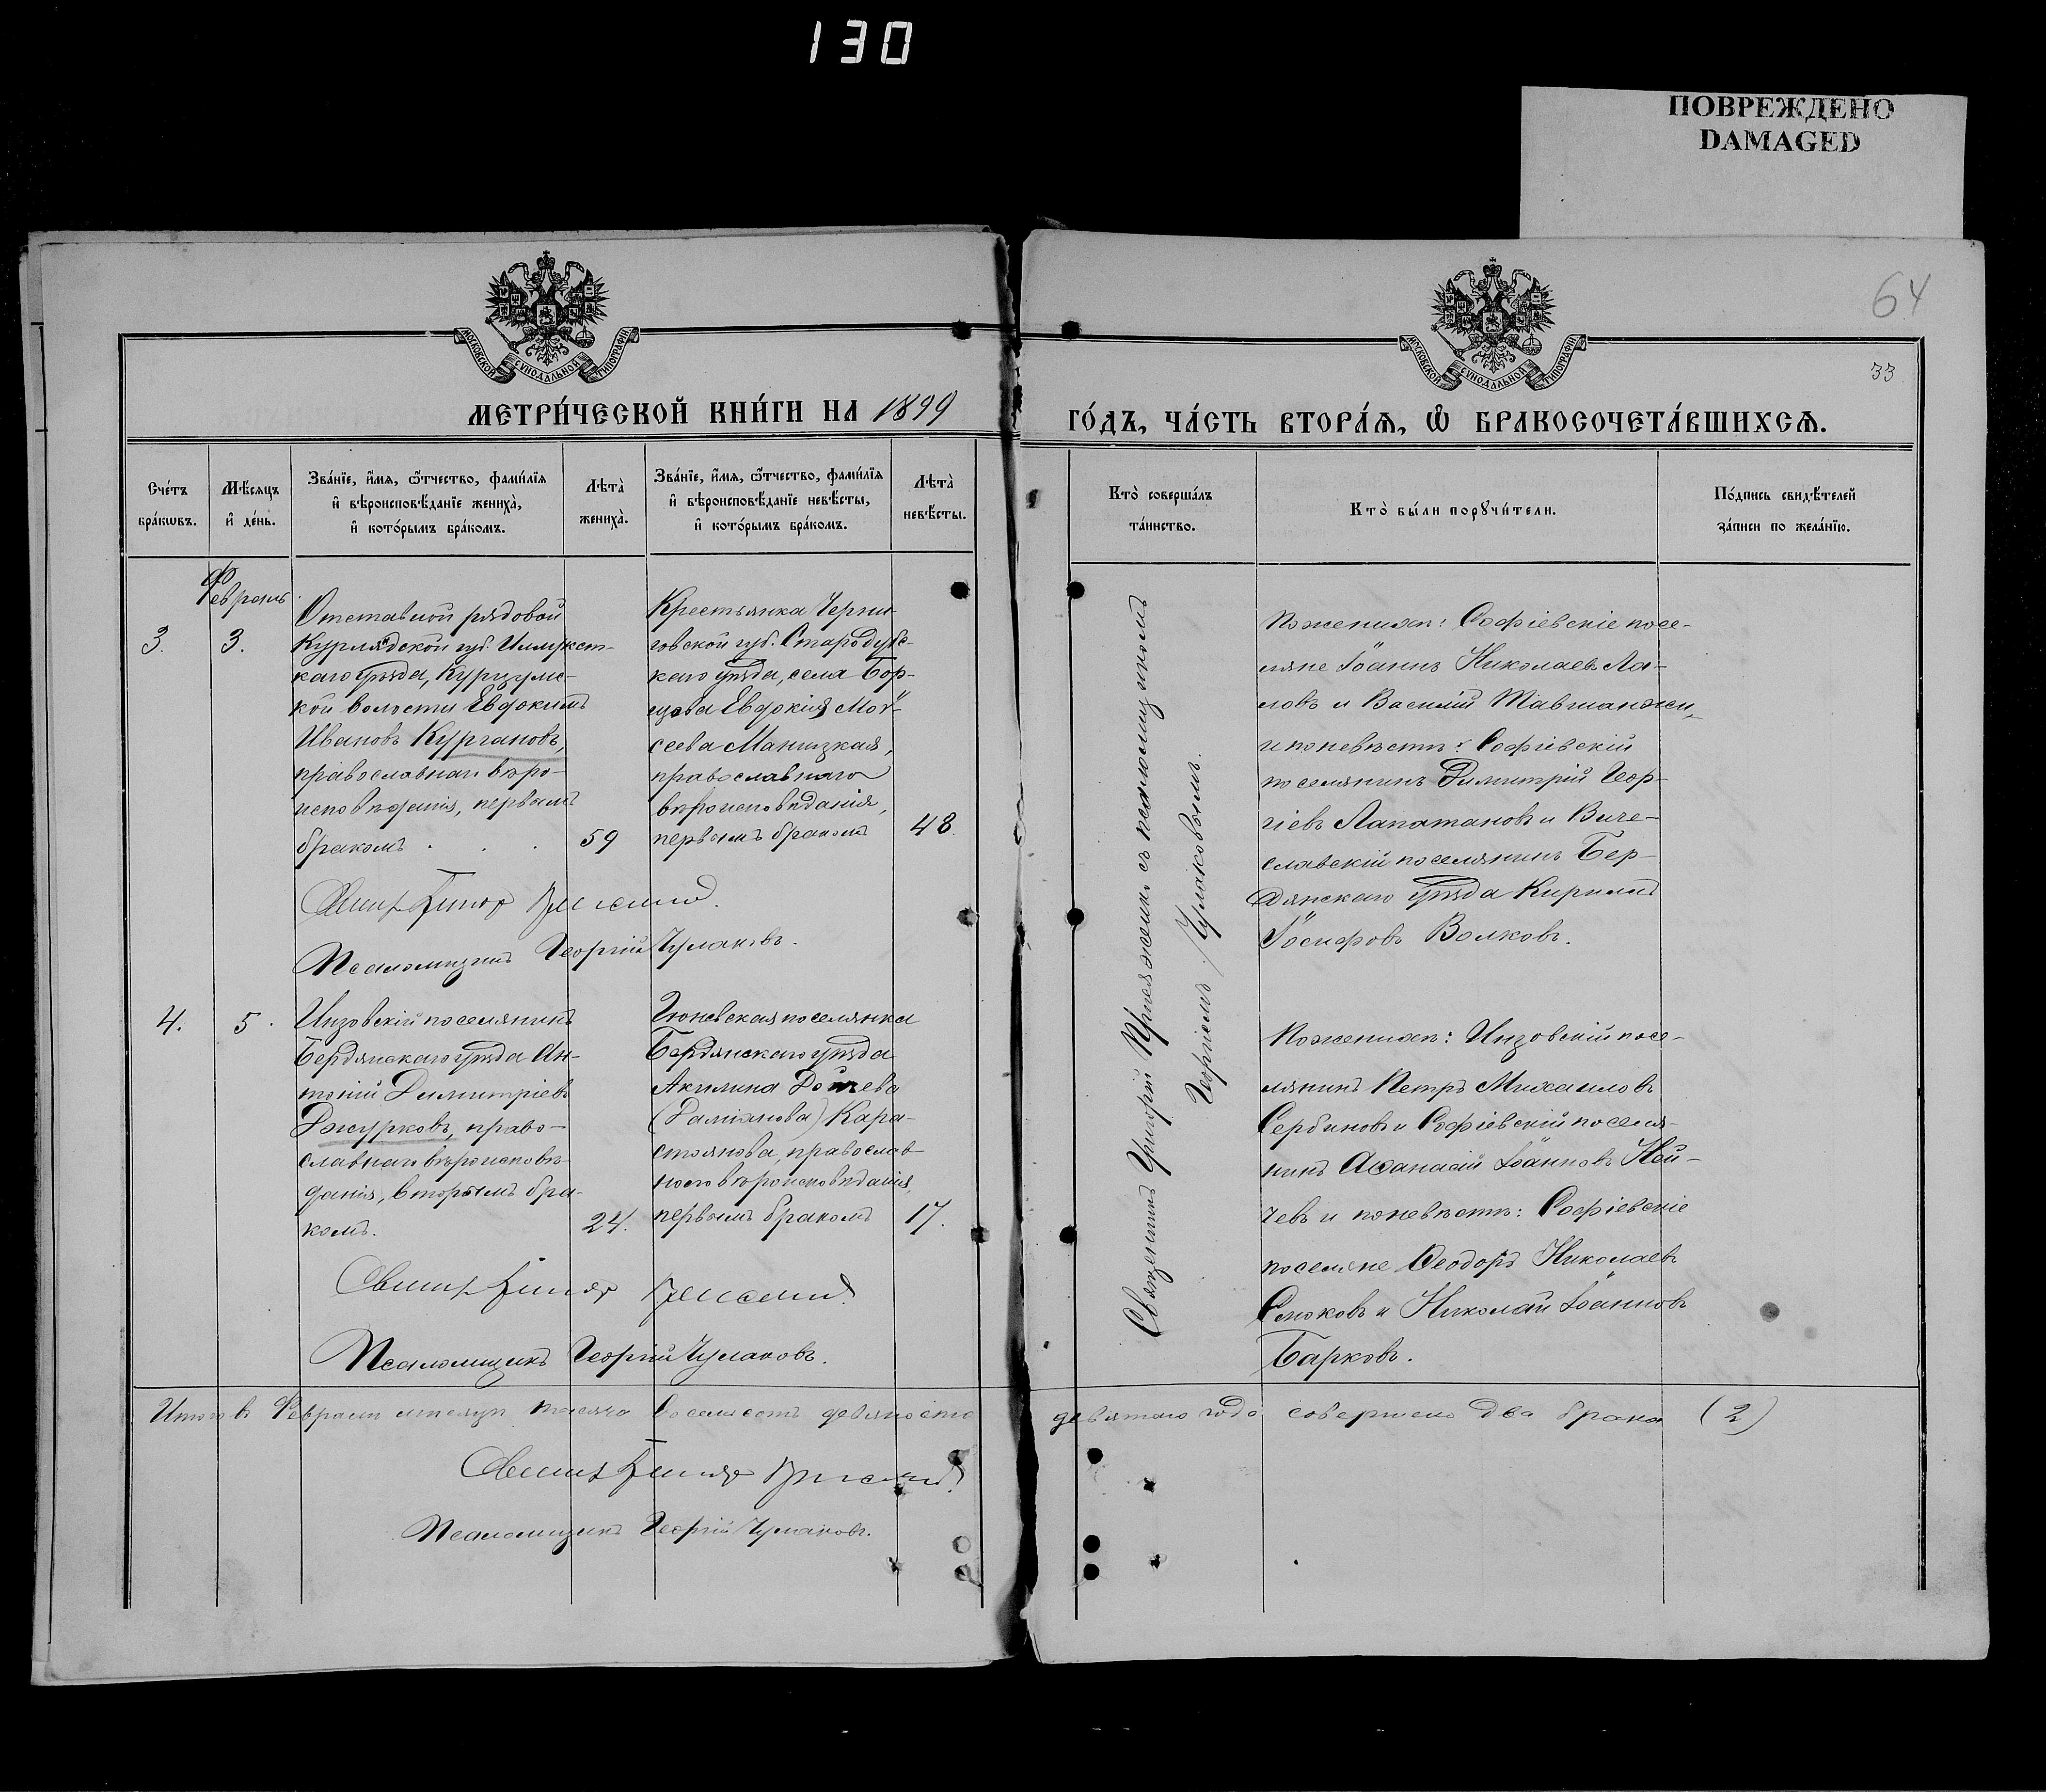 130
ПОВРЕЖДЕНО
DAMAGED
64
33
МОСКОВСКОЙ СѴНОДАЛЬНОЙ ТИПОГРАФІИ
МОСКОВСКОЙ СѴНОДАЛЬНОЙ ТИПОГРАФІИ
МЕТРИ́ЧЕСКОЙ КНИ́ГИ НА 1899
ГО́ДЪ, ЧА́СТЬ ВТОРА́Я, Ѽ БРАКОСОЧЕТА́ВШИХСЯ.
Сче́тъ
бра́ковъ.
Мѣ́сяцъ
и҆ де́нь.
Зва́нїе, и҆́мя, ѻ҆́тчество, фами́лїя
и҆ вѣроисповѣ́данїе жениха̀,
и҆ кото́рымъ бра́комъ.
Лѣта̀
жениха̀.
Зва́нїе, и҆́мя, ѻ҆́тчество, фами́лїя
и҆ вѣроисповѣ́данїе невѣ́сты,
и҆ кото́рымъ бра́комъ.
Лѣта̀
невѣ́сты.
Кто̀ соверша́лъ
та́инство.
Кто̀ бы́ли порꙋчи́тели.
По́дпись свидѣ́телей
за́писи по жела́нїю.
Февраль
3.
3.
Отставной рядовой
Курляндской губ. Иллукст-
каго уѣзда, Курцумс-
кой волости Евдокимъ
Ивановъ Кургановъ,
православнаго вѣро-
исповѣданія, первымъ
бракомъ . . .
59
Крестьянка Черни-
говской губ. Стародубс-
каго уѣзда, села Бор-
щова Евдокія Мой-
сеева Маницкая,
православнаго
вѣроисповѣданія,
первымъ бракомъ
48.
Священникъ Григорій
Псаломщикъ Георгій Чулаковъ.
Священникъ Григорій съ псаломщикомъ
Георгіемъ Чулаковымъ.
По женихѣ: Софіевскіе посе-
ляне Іоаннъ Николаевъ Ла-
ловъ и Василій Тавшанжи,
и по невѣстѣ: Софіевскій
поселянинъ Димитрій Геор-
гіевъ Лапатановъ и Виче-
славскій поселянинъ Бер-
дянскаго уѣзда Кириллъ
Іосифовъ Волковъ.
4.
5.
Инзовскій поселянинъ
Бердянскаго уѣзда Ан-
тоній Димитріевъ
Джурковъ, право-
славнаго вѣроисповѣ-
данія, вторымъ бра-
комъ.
24.
Гюневская поселянка
Бердянскаго уѣзда
Акилина Дойчева
(Даміанова) Кара-
стоянова, православ-
наго вѣроисповѣданія,
первымъ бракомъ
17.
Священникъ Григорій
Псаломщикъ Георгій Чулаковъ.
По женихѣ: Инзовскій посе-
лянинъ Петръ Михаиловъ
Сербиновъ и Софіевскій поселя-
нинъ Аѳанасій Іоанновъ Ней-
чевъ и по невѣстѣ: Софіевскіе
поселяне Ѳеодоръ Николаевъ
Стоковъ и Николай Іоанновъ
Барковъ.
Итого въ Февралѣ мѣсяцѣ тысяча восемьсотъ девяносто
девятаго года совершено два брака (2)
Священникъ Григорій
Псаломщикъ Георгій Чулаковъ.